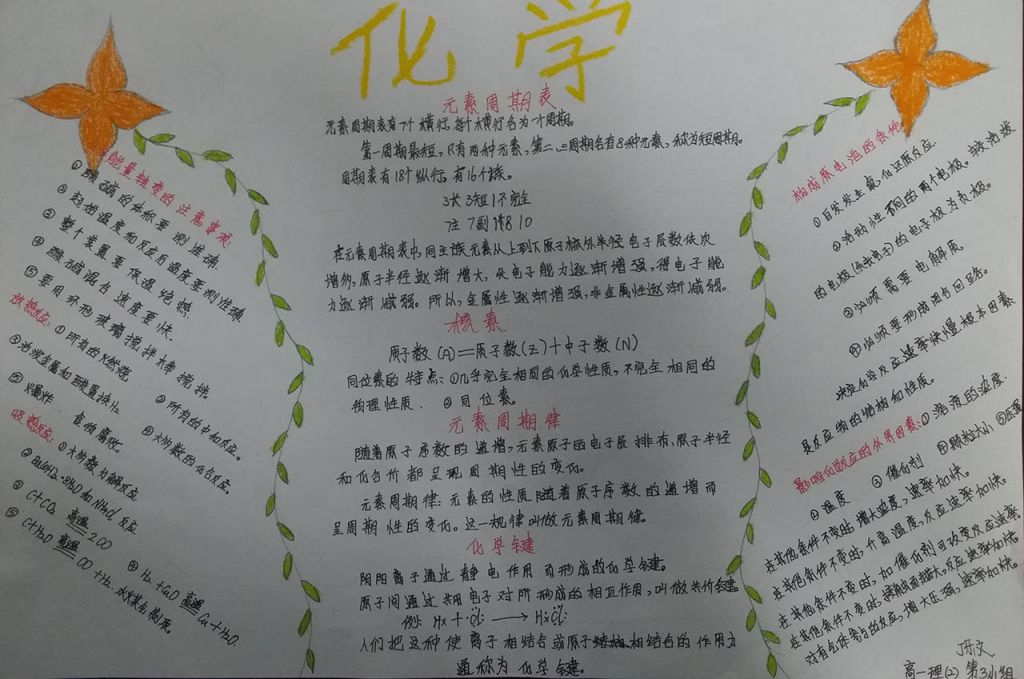 化学
元素周期表
元素周期表有7个横行,每个横行名为一个周期。
第一周期最短,只有两种元素,第二、三周期各有8种元素,称为短周期。
周期表有18个纵行,有16个族。
3长3短1不完全
7主7副1零810
在元素周期表中,同主族元素从上到下原子核外半径电子层数依次
增多,原子半径逐渐增大,失电子能力逐渐增强,得电子能
力逐渐减弱。所以,金属性逐渐增强,非金属性逐渐减弱。
核素
原子数(A)=质子数(Z)+中子数(N)
同位素的特点:①几乎完全相同的化学性质,不完全相同的
物理性质. ②同位素.
元素周期律
随着原子序数的递增,元素原子的电子层排布,原子半径
和化合价都呈现周期性的变化。
元素周期律:元素的性质随着原子序数的递增而
呈周期性的变化。这一规律叫做元素周期律。
化学键
阴阳离子通过静电作用而形成的化学键。
原子间通过共用电子对所形成的相互作用,叫做共价键
例:
人们把这种使离子相结合或原子相结合的作用力
通称为化学键。
能量转变的注意事项:
①酸碱的体称要测准确.
②起始温度和反应后温度要测准确.
③整个装置要保温绝热.
④酸碱混合速度要快.
⑤要用环形玻璃搅拌棒搅拌.
放热反应:①所有的燃烧 ②所有的中和反应。
③活泼金属和酸置换H₂
④大多数的化合反应。
⑤爆炸. 食物腐败。
吸热反应:①大多数分解反应
②Ba(OH)₂·8H₂O和NH₄Cl反应
③C+CO₂ 高温 2CO ④H₂+CuO 高温 Cu+H₂O.
⑤C+H₂O 高温 CO+H₂.
构成原电池的条件
①自发发生氧化还原反应
②活动性不同的两个电极.
的电极(失去电子)的电子极为负极。
③必须需要电解质.
④必须要形成闭合回路。
决定化学反应速率快慢根本因素
是反应物的结构和性质。
影响化学反应的外界因素:①溶液的浓度.
②温度 ③催化剂 ④颗粒大小 ⑤压强
在其他条件不变时,增大浓度,速率加快。
在其他条件不变时,升高温度,反应速率加快。
在其他条件不变时,加催化剂可改变反应速率
在其他条件不变时,接触面积越大,反应速率加快。
对有气体参与的反应,增大压强,速率加快。
高一理(2)第3小组